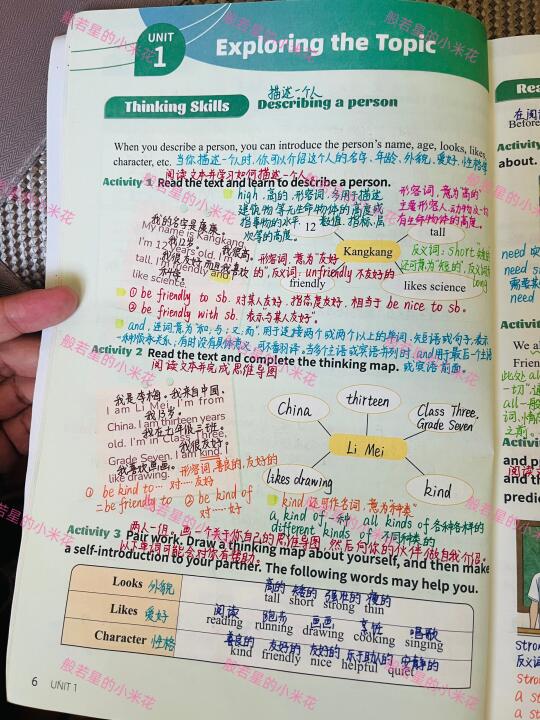 UNIT 1
Exploring the Topic
描述一个人
Thinking Skills Describing a person
When you describe a person, you can introduce the person's name, age, looks, likes,
character, etc. 当你描述一个人时,你可以介绍这个人的名字、年龄、外貌、爱好、性格等
阅读文本并学习如何描述一个人。
Activity 1 Read the text and learn to describe a person.
high, 高的, 形容词, 多用于描述
建筑物等无生命物体的高度或
指事物的水平、数值、指标、层
次等的高度。
形容词, 意为"高的"
有生命物体的高度。
12
tall
Kangkang
friendly
likes science
我的名字是康康。
My name is Kangkang.
我12岁。
I'm 12
我很高。
tall. I'm friendly and
like science.
反义词: short
long
形容词, 意为"友好的", 反义词: unfriendly 不友好的
① be friendly to sb. 对某人友好, 指态度友好, 相当于 be nice to sb.
② be friendly with sb. 表示与某人友好"。
and, 连词, 意为"和; 与; 又; 而". 用于连接两个或两个以上的单词、短语或句子, 表示
Activity 2 Read the text and complete the thinking map.
阅读文本并完成思维导图
我是李梅。我来自中国。
I am Li Mei. I'm from
我13岁。
China. I am thirteen years
我在七年级三班。
old. I'm in Class Three,
我很友好。
Grade Seven. I am kind. I
我喜欢画画。
like drawing.
形容词, 善良的, 友好的
China
thirteen
Class Three, Grade Seven
Li Mei
likes drawing
kind
① be kind to… 对……友好
= be friendly to
② be kind of 对……好
kind 还可作名词, 意为"种类"
a kind of 一种 all kinds of 各种各样的
different kinds of 不同种类的
两人一组。画一个关于你自己的思维导图, 然后向你的伙伴做自我介绍。
Activity 3 Pair work. Draw a thinking map about yourself, and then make
以下单词可能会对你有帮助。
a self-introduction to your partner. The following words may help you.
Looks 外貌
高的 矮的 强壮的 瘦的
tall short strong thin
Likes 爱好
阅读 跑步 画画 烹饪 唱歌
reading running drawing cooking singing
Character 性格
善良的 友好的 友好的 乐于助人的 安静的
kind friendly nice helpful quiet
6 UNIT 1
般若星的小米花